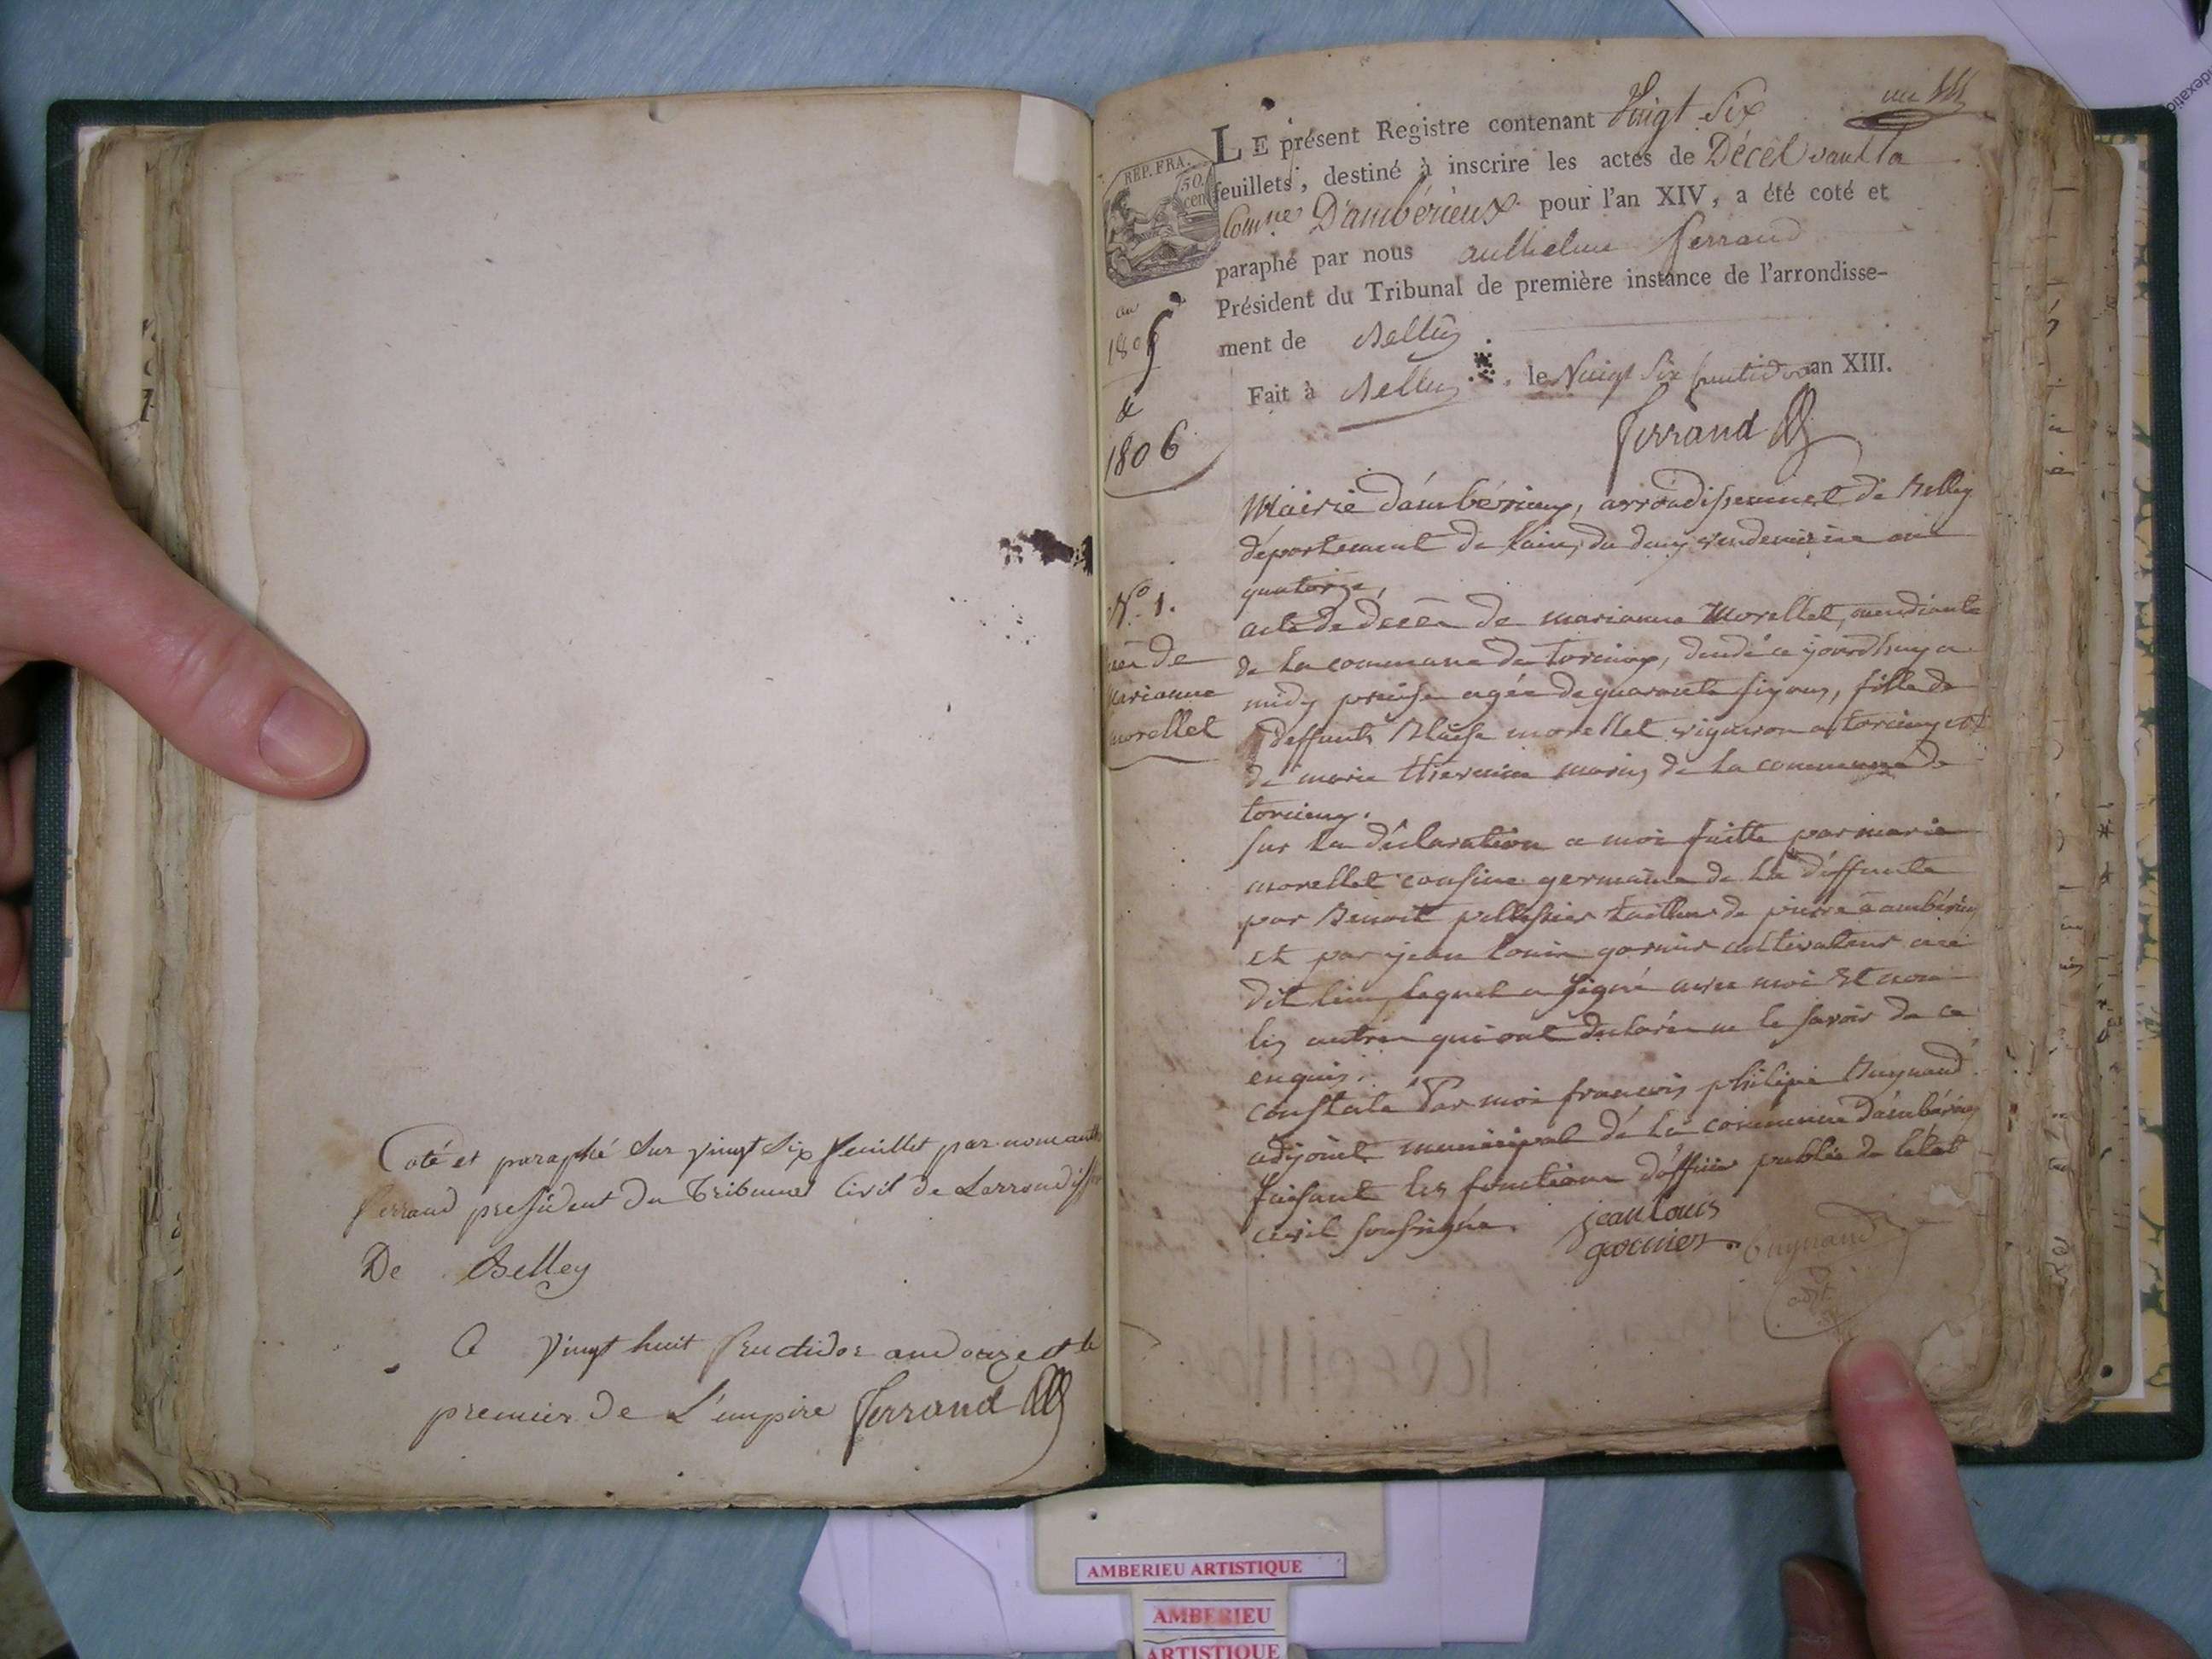 Coté et paraphé sur vingt six feuillets par nous anth
ferrand president du Tribunal Civil de Larrondiss
De Belley
A vingt huit fructidor an douze et le
premier de L'empire ferrand
un
LE présent Registre contenant Vingt Six
feuillets, destiné à inscrire les actes de Décès dans la
Comne D'ambérieux pour l'an XIV, a été coté et
paraphé par nous anthelme ferrand
Président du Tribunal de première instance de l'arrondisse-
ment de Belley
Fait à Belley, le Vingt Six fructidor an XIII.
ferrand
REP. FRA.
50
cen
an
1805
&
1806
Mairie d'ambérieux, arrondissement de Belley
département de l'ain, du deux vendemiaire an
quatorze,
N° 1.
de
marianne
morellet
acte de décès de marianne Morellet, mendiante
de la commune de torcieux, décédé ce jourdhuy a
midy precise agée de quarante six ans, fille de
deffunts Blaise morellet vigneron a torcieux et
de marie thevenin mariés de la commune de
torcieux.
sur la déclaration a moi faitte par marie
morellet cousine germaine de la déffunte
par Benoit pellissier tailleur de pierre a ambérieux
et par jean louis garnier cultivateur au
dit lieu lequel a signé avec moi et non
les autres qui ont déclarés ne le savoir de ce
enquis.
constaté Par moi francois philipe Buynand
adjoint municipal dé la commune d'ambérieux
faisant les fonctions d'officier public de létat
civil soussigné.
jean Louis
garnier
Buynand
adjt
AMBERIEU ARTISTIQUE
AMBERIEU
ARTISTIQUE